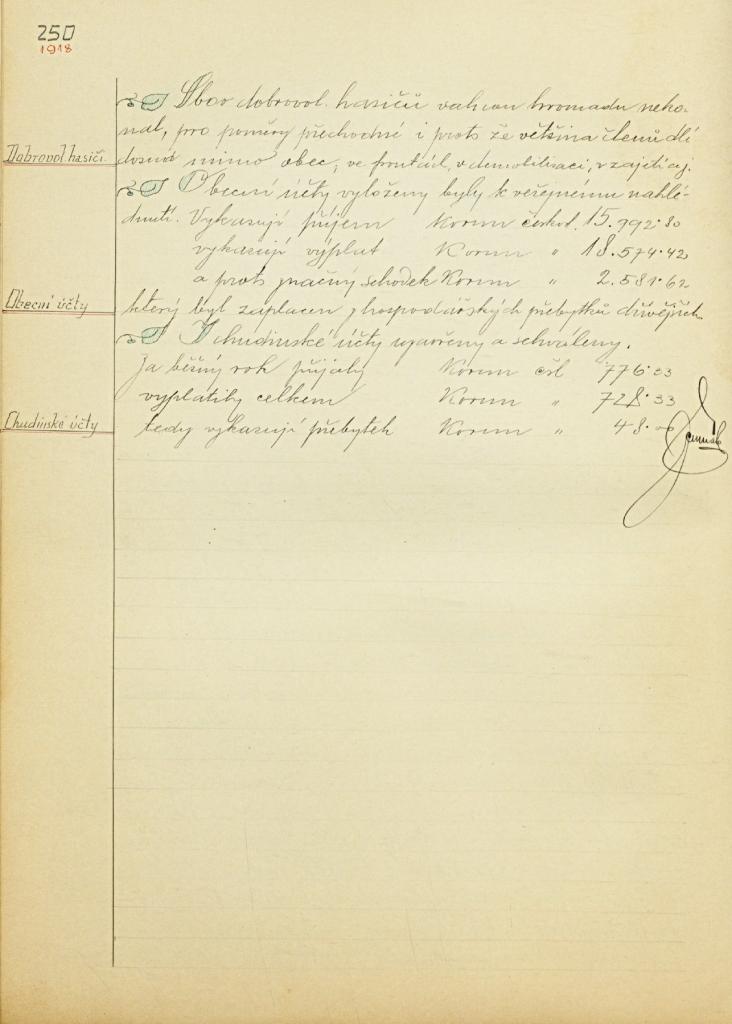 250
1918
Sbor dobrovol. hasičů valnou hromadu neko-
nal, pro poměry přechodné i proto že většina členů dlí
Dobrovol. hasiči.
dosud mimo obec, ve frontách, v demobilisaci, v zajetí aj.
Obecní účty vyloženy byly k veřejnému nahlé-
dnutí. Vykazují příjem Korun českosl. 15.992·80
vykazují výplat Korun " 18.574·42
a proto značný schodek Korun " 2.581·62
Obecní účty
který byl zaplacen z hospodářských přebytků dřívějších
I chudinské účty uzavřeny a schváleny.
Za běžný rok přijaly Korun čsl 776·33
vyplatily celkem Korun " 728·33
Chudinské účty
tedy vykazují přebytek Korun " 48·00